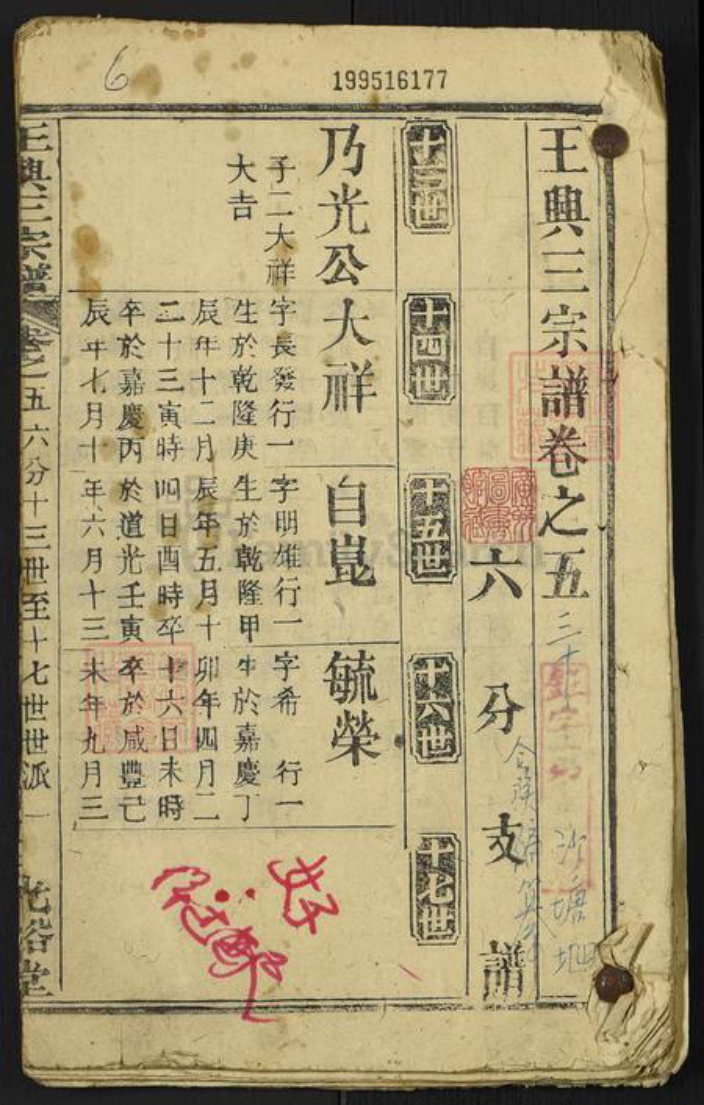 6
199516177
王興三宗譜卷之五
三十
沙塘坳
六分支譜
十三世
十四世
十五世
十六世
十七世
乃光公
子二大祥
大吉
大祥
字長發行一
生於乾隆庚
辰年十二月
二十三寅時
卒於嘉慶丙
辰年七月十
自崑
字明雄行一
生於乾隆甲
辰年五月十
四日酉時卒
於道光壬寅
年六月十三
毓榮
字希 行一
生於嘉慶丁
卯年四月二
十六日未時
卒於咸豐己
未年九月三
好
王興三宗譜
卷之五六分十三世至十七世世派一